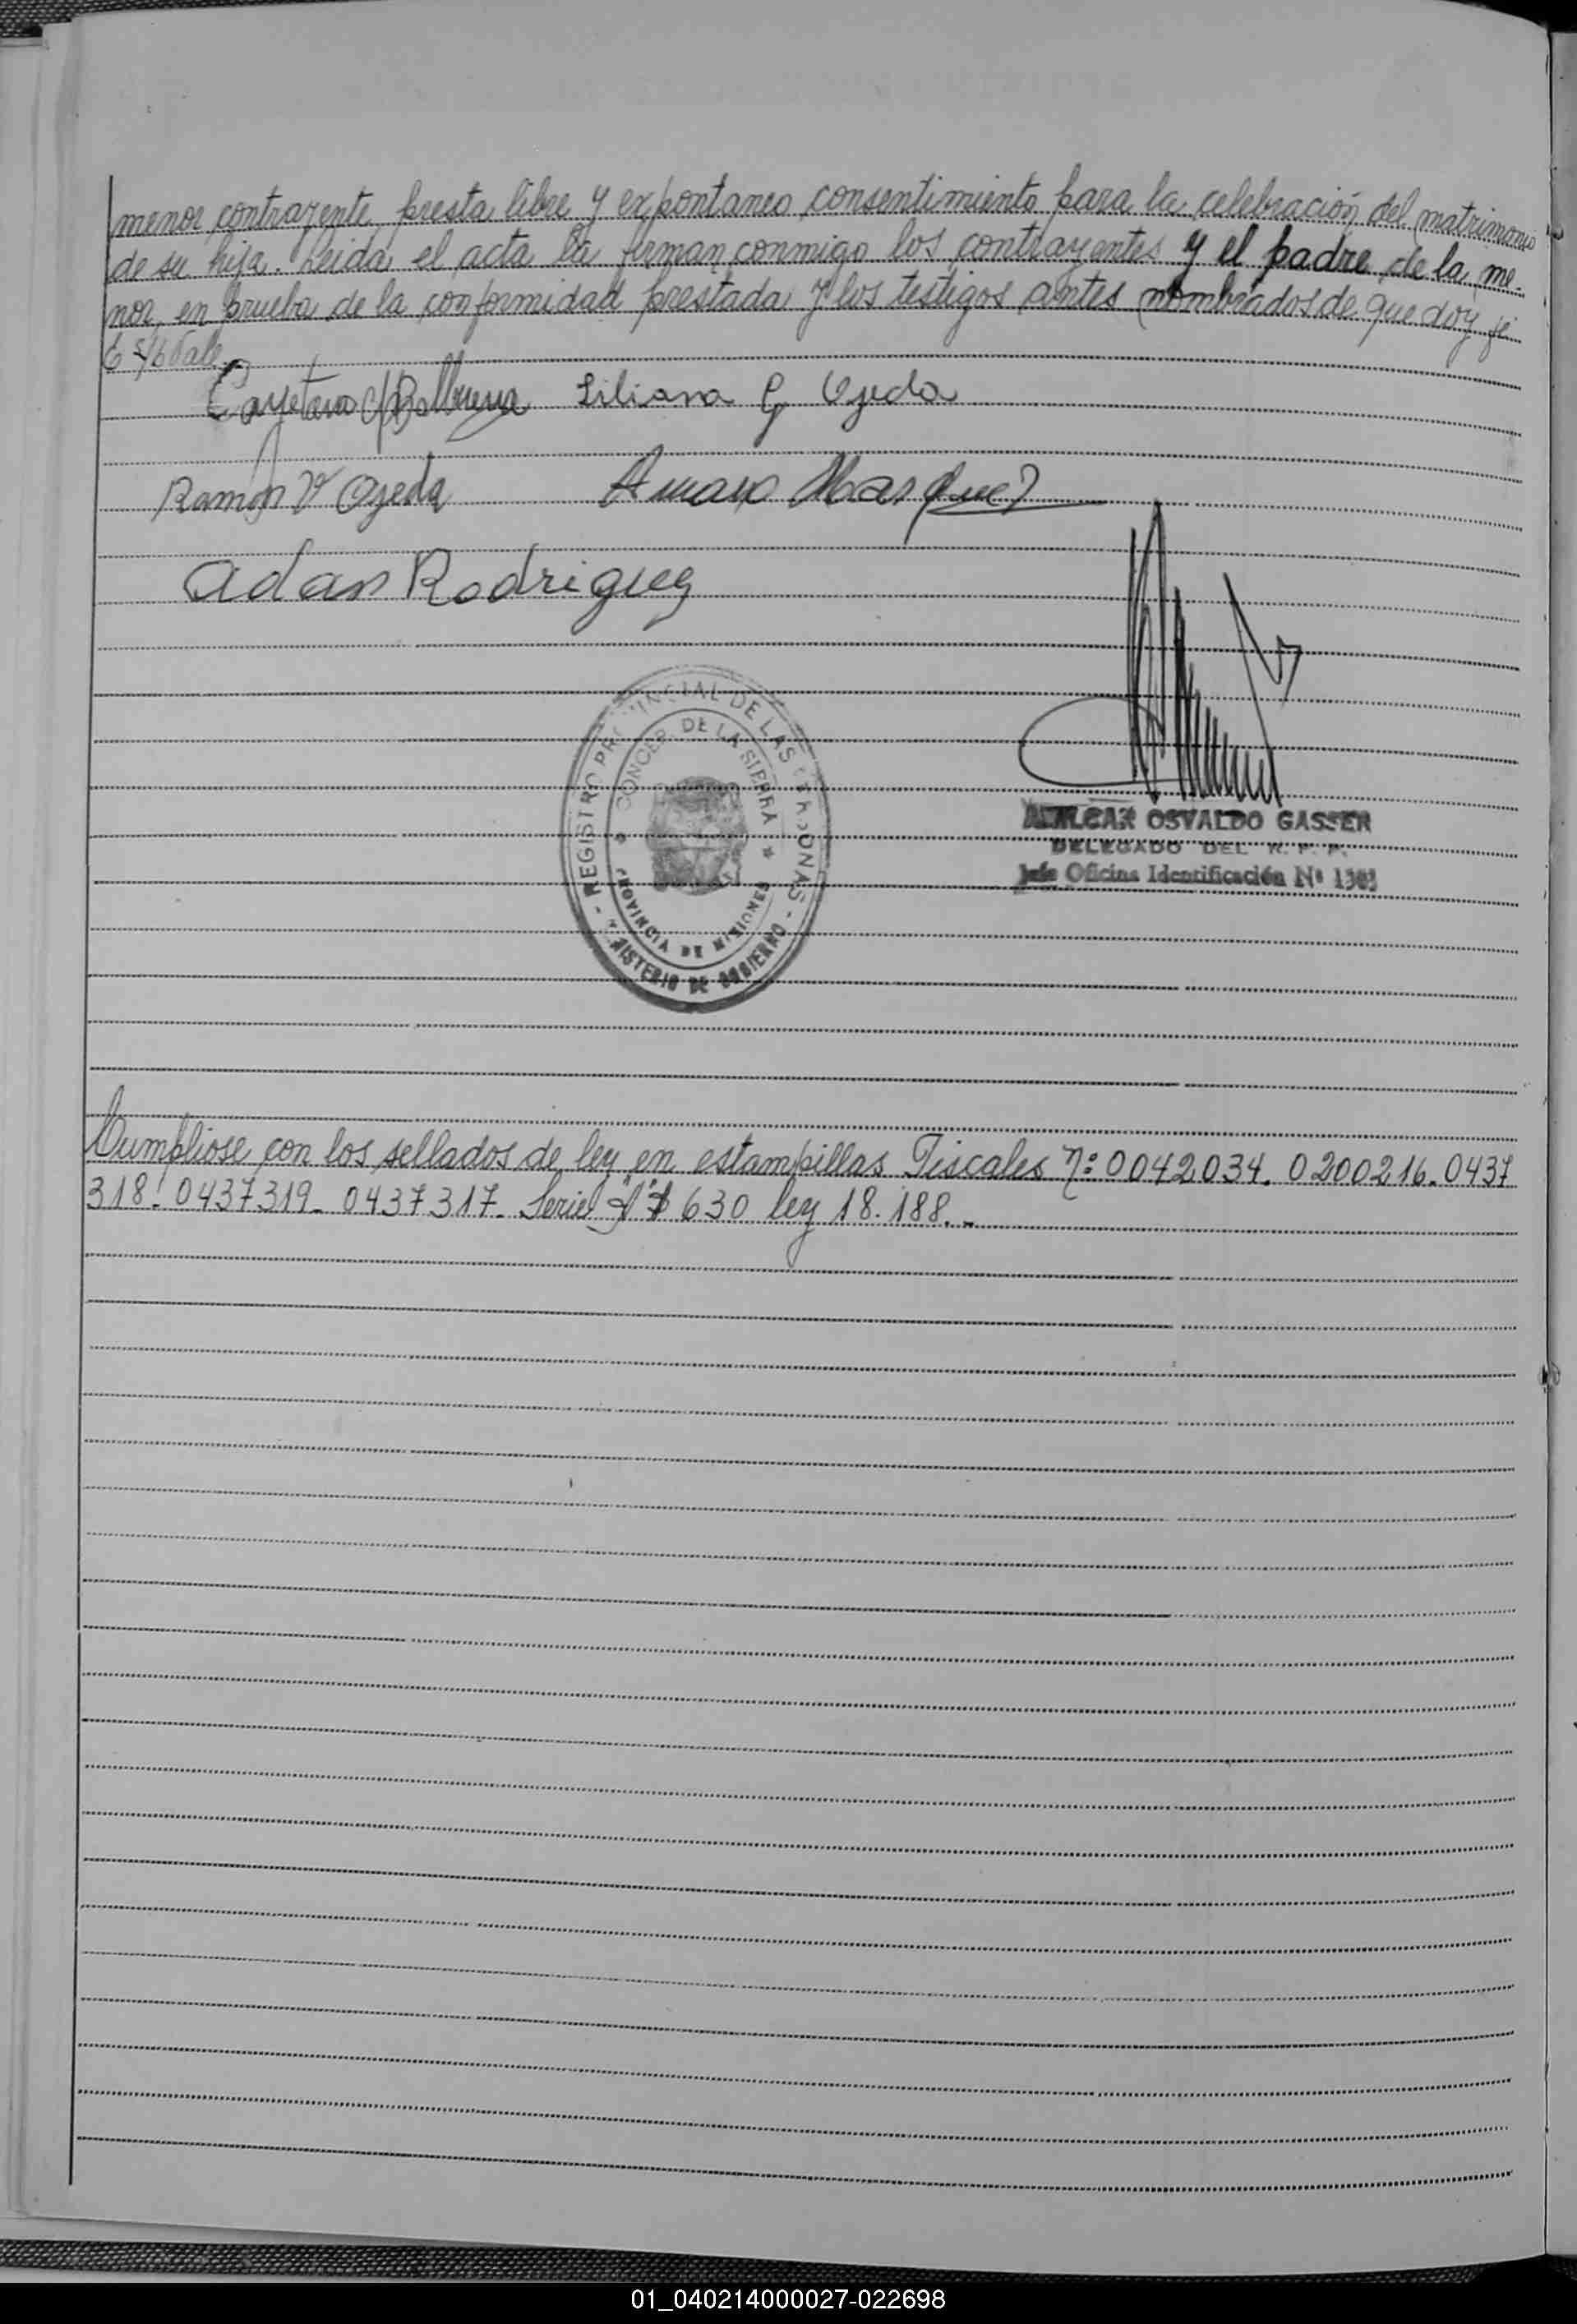 menor contrayente, presta libre y expontaneo consentimiento para la celebración del matrimonio
de su hija. Leida el acta la firman conmigo los contrayentes y el padre de la me-
nor, en prueba de la conformidad prestada y los testigos antes nombrados de que doy fé
E s/b Vale.
Cayetano Liliana G Ojeda
Ramón V Ojeda Amaro Marquez
Adan Rodriguez
REGISTRO PROVINCIAL DE LAS PERSONAS - MINISTERIO DE GOBIERNO -
CONCEP. DE LA SIERRA * PROVINCIA DE MISIONES *
AMILCAR OSVALDO GASSER
DELEGADO DEL R. P. P.
Jefe Oficina Identificación Nº 1303
Cumpliose con los sellados de ley en estampillas Fiscales nº 0042034. 0200216. 0437
318. 0437319. 0437317. Serie "A" $ 630 ley 18.188..
01_040214000027-022698